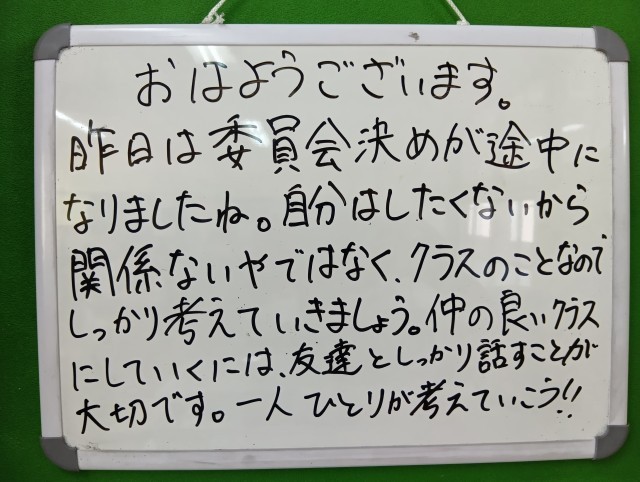 おはようございます。
昨日は委員会決めが途中に
なりましたね。自分はしたくないから
関係ないやではなく、クラスのことなので
しっかり考えていきましょう。仲の良いクラス
にしていくには、友達としっかり話すことが
大切です。一人ひとりが考えていこう!!